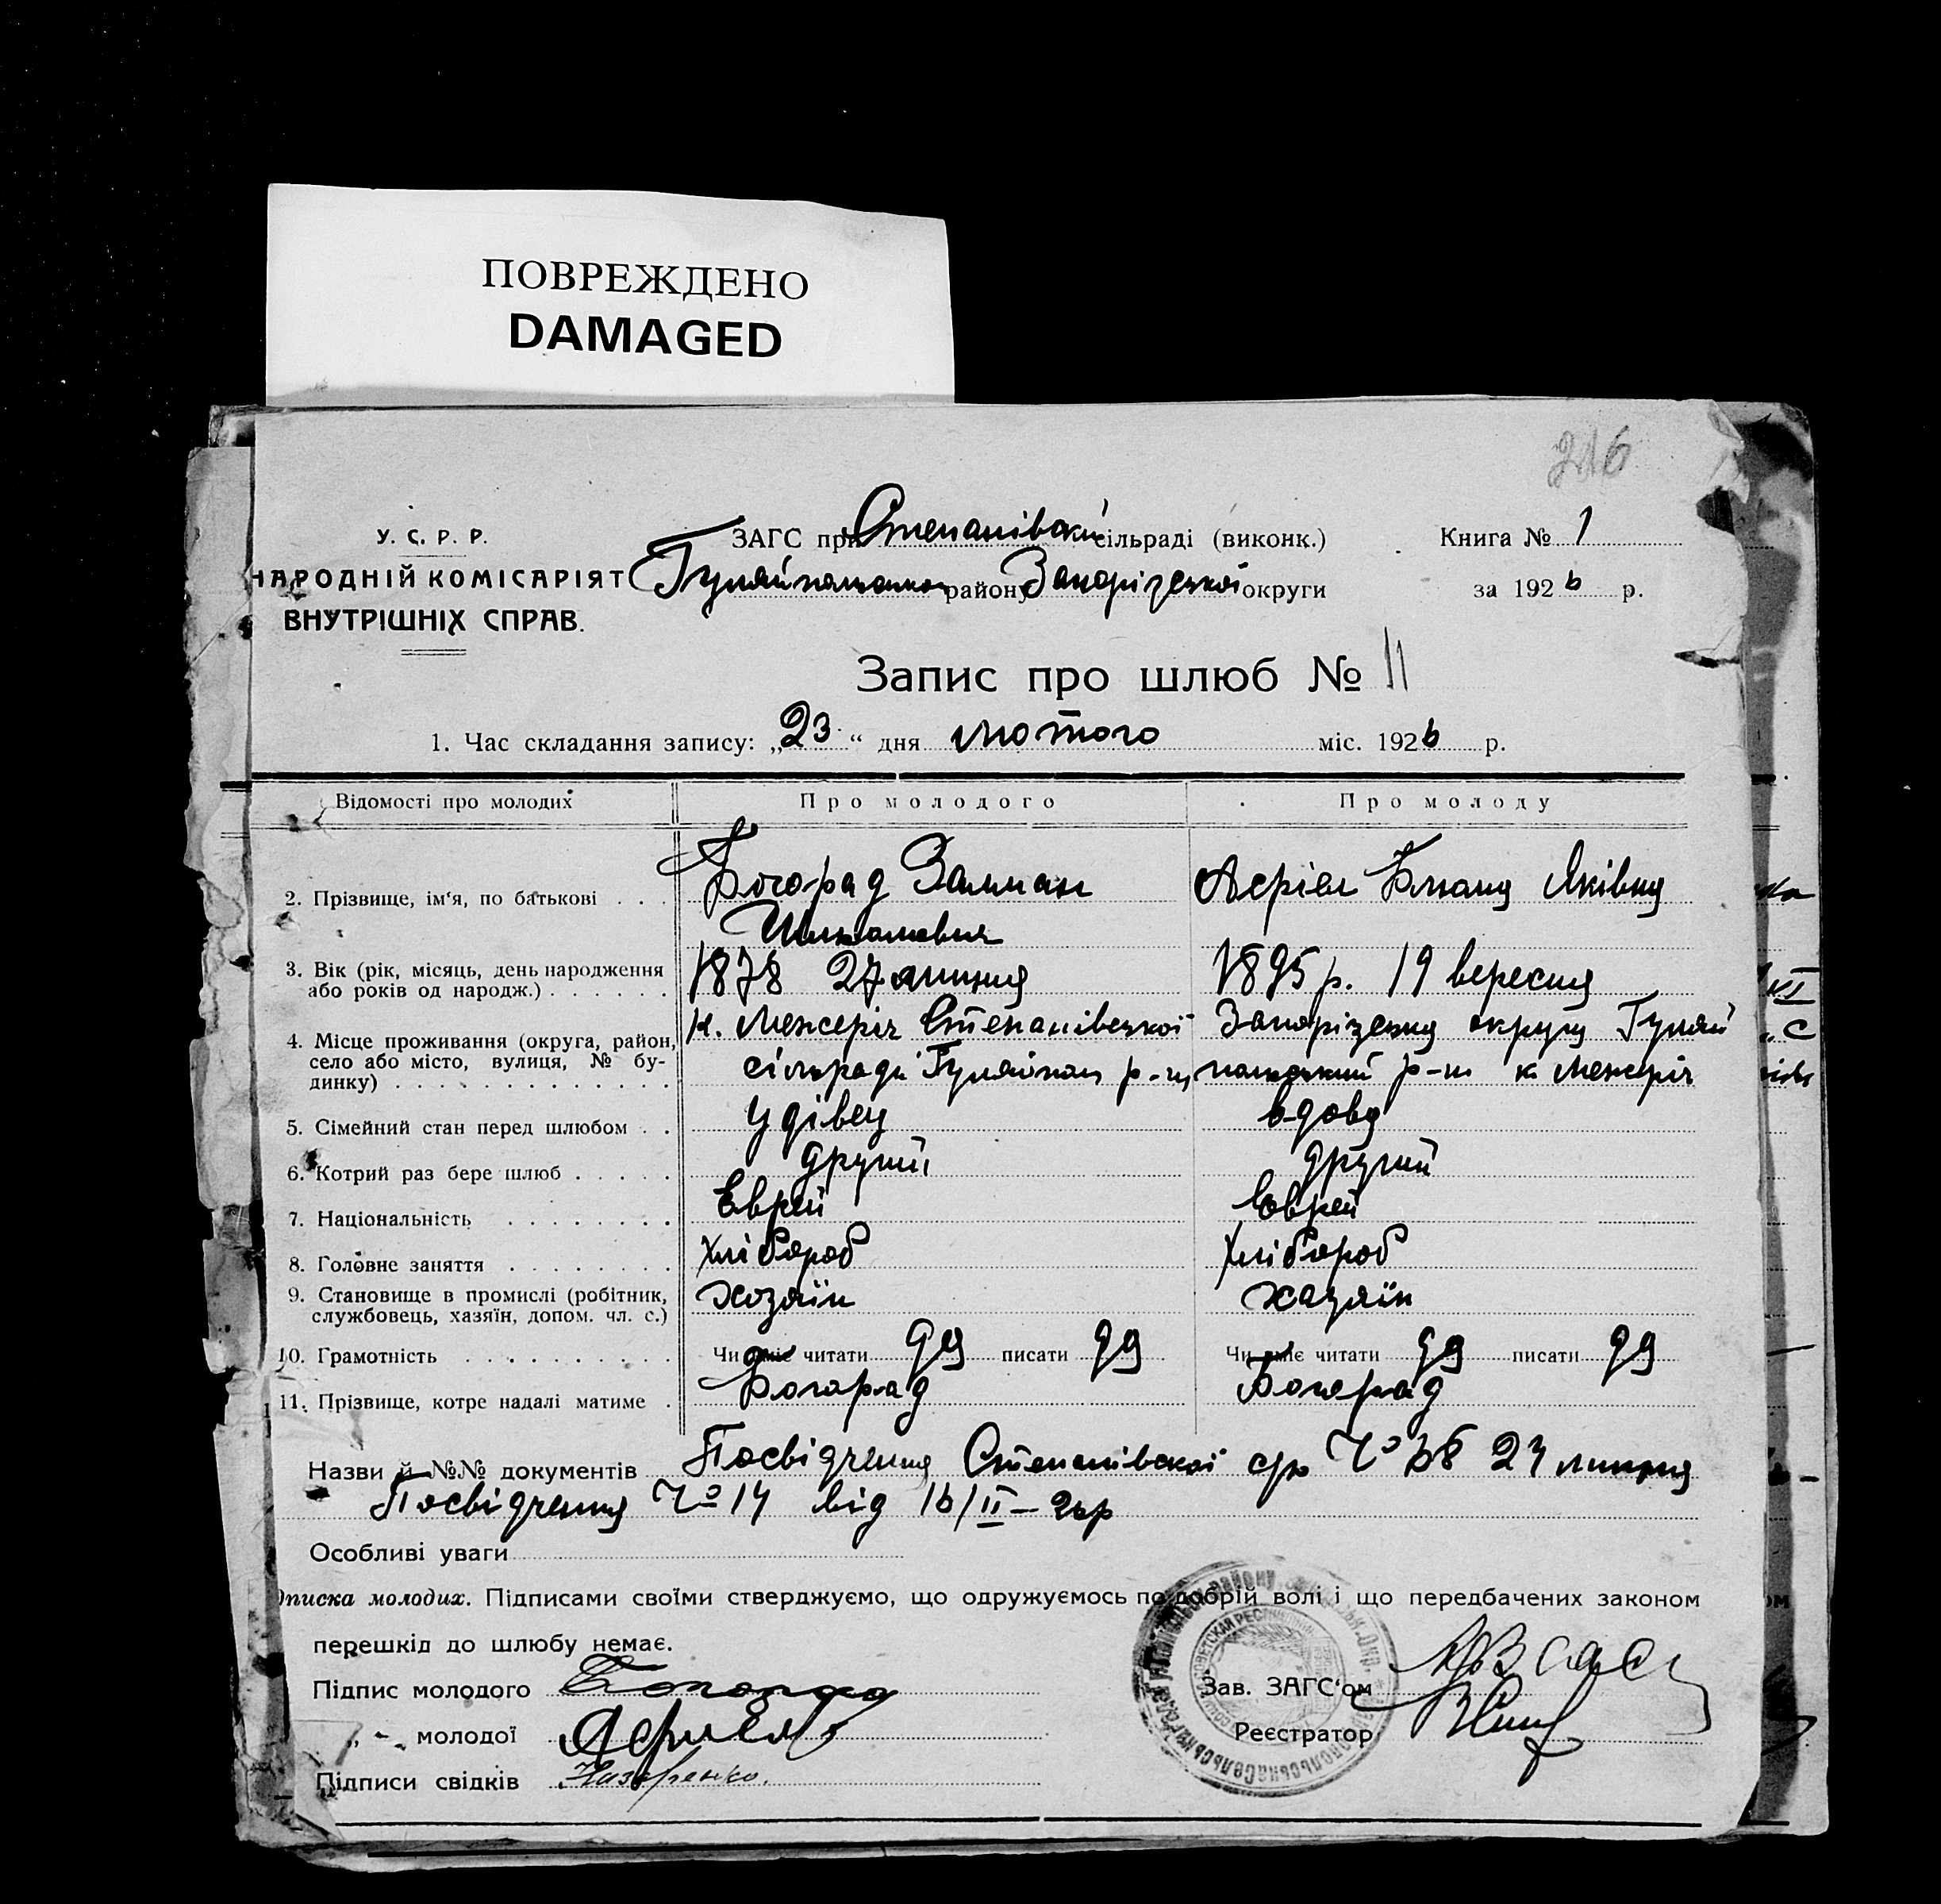 ПОВРЕЖДЕНО
DAMAGED
216
У. С. Р. Р.
НАРОДНІЙ КОМІСАРІЯТ
ВНУТРІШНІХ СПРАВ.
ЗАГС при Степанівській сільраді (виконк.)
Гуляйпольського району Запорізської округи
Книга № 1
за 1926 р.
Запис про шлюб № 11
1. Час складання запису: „23“ дня лютого міс. 1926 р.
Відомості про молодих Про молодого Про молоду
2. Прізвище, ім'я, по батькові Богорад Залман Яківна
3. Вік (рік, місяць, день народження або років од народж.) 1878 27 липня 1895 р. 19 вересня
4. Місце проживання (округа, район, село або місто, вулиця, № будинку) к. Межеріч Степанівської Запорізська округи Гуляй
сільради Гуляйпол р-ну польський р-н к Межеріч
5. Сімейний стан перед шлюбом Удівец вдова
6. Котрий раз бере шлюб другий другий
7. Національність Еврей Еврей
8. Головне заняття Хлібороб Хлібороб
9. Становище в промислі (робітник, службовець, хазяїн, допом. чл. с.) Хозяїн хазяїн
10. Грамотність Чи вміє читати да писати да Чи вміє читати да писати да
11. Прізвище, котре надалі матиме Богорад Богорад
Назви й №№ документів Посвідчення Степанівскої с/р № липня
Посвідчення № 14 від 16/II–26р
Особливі уваги
дписка молодих. Підписами своїми стверджуємо, що одружуємось по добрій волі і що передбачених законом
перешкід до шлюбу немає.
Підпис молодого Богорад
„ - „ молодої
Підписи свідків Назаренко.
Зав. ЗАГС'ом
Реєстратор